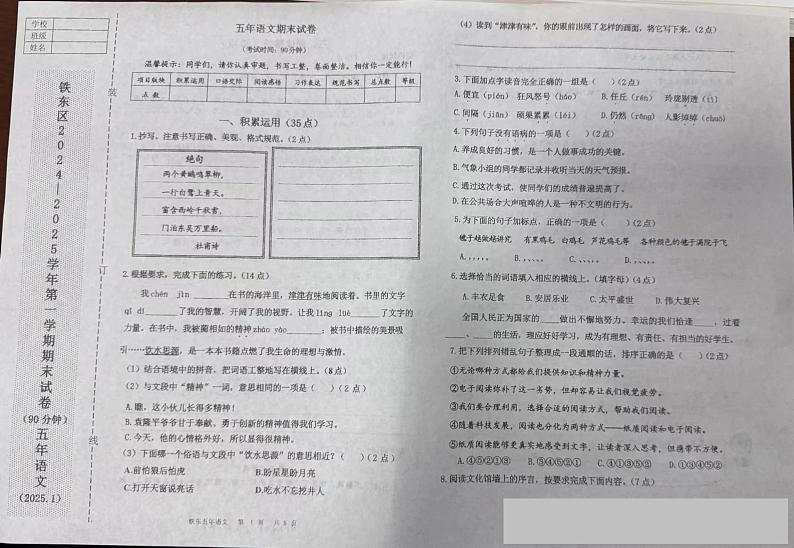 学校
班级
姓名
铁东区2024—2025学年第一学期期末试卷
(90分钟)
五年语文
(2025.1)
装
订
线
五年语文期末试卷
(考试时间：90分钟)
温馨提示：同学们，请你认真审题，书写工整，卷面整洁。相信你一定能行！
项目版块 积累运用 口语交际 阅读感悟 习作表达 规范书写 总点数 等级
点 数
一、积累运用（35点）
1.抄写。注意书写正确、美观、格式规范。(2点)
绝句
两个黄鹂鸣翠柳，
一行白鹭上青天。
窗含西岭千秋雪，
门泊东吴万里船。
杜甫诗
2.根据要求，完成下面的练习。(14点)
我chén jìn ______在书的海洋里，津津有味地阅读着。书里的文字
qǐ dí ______了我的智慧，开阔了我的视野，让我lǐng lüè______了文字的
力量。在书中，我被蔺相如的精神zhào yào______；被书中描绘的美景吸
引······饮水思源，是一本本书籍点燃了我生命的理想与激情。
（1）结合语境中的拼音，把词语工整地写在横线上。(8点)
（2）与文段中“精神”一词，意思相同的一项是（ ）(2点)
A.瞧，这小伙儿长得多精神！
B.袁隆平爷爷甘于奉献、勇于创新的精神值得我们学习。
C.今天，他的心情格外好，所以显得很精神。
（3）下面哪一个俗语与文段中“饮水思源”的意思相近？（ ）(2点)
A.前怕狼后怕虎 B.盼星星盼月亮
C.打开天窗说亮话 D.吃水不忘挖井人
铁东五年语文 第 1 页 共 8 页
（4）读到“津津有味”，你的眼前出现了怎样的画面，将它写下来。(2点)
3.下面加点字读音完全正确的一组是（ ）(2点)
A.便宜（pián） 狂风怒号（háo） B.任丘（rén） 玲珑剔透（tì）
C.间隔（jiàn） 硕果累累（léi） D.仍然（rāng） 人影绰绰（chuò）
4.下列句子没有语病的一项是（ ）(2点)
A.养成良好的习惯，是一个人做事成功的关键。
B.气象小组的同学都记录并收听当天的天气预报。
C.通过这次考试，使同学们的成绩普遍提高了。
D.在公共场合大声喧哗的人是一种不文明的行为。
5.为下面的句子加标点，正确的一项是（ ）(2点)
毽子越做越讲究 有黑鸡毛 白鸡毛 芦花鸡毛等 各种颜色的毽子满院子飞
6.选择恰当的词语填入相应的横线上。(填字母)(4点)
A.丰衣足食 B.安居乐业 C.太平盛世 D.伟大复兴
全国人民正为国家的____做出不懈地努力。幸运的我们恰逢____，过着
____、____的生活，理应好好学习，成为有理想、有责任、有担当的好学生。
7.把下列排列错乱句子整理成一段通顺的话，排序正确的是（ ）(2点)
①无论哪种方式都给我们提供知识和精神力量。
②电子阅读弥补了这一劣势，但却容易让我们视觉疲劳。
③我们要合理利用，选择合适的阅读方式，帮助我们阅读。
④随着科技发展，阅读也分化为两种方式——纸质阅读和电子阅读。
⑤纸质阅读能够更真实地感受到文字，让读者深入思考，但携带不方便。
A.④⑤②①③ B.③④⑤②① C.④①③⑤② D.①③④⑤②
8.阅读文化馆墙上的序言，按要求完成下面内容。(7点)